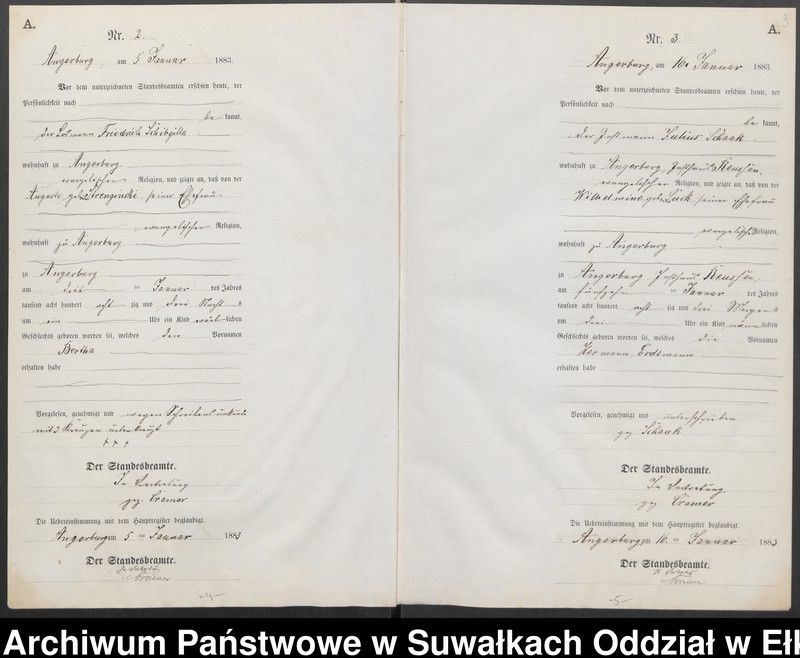 A.
Nr. 2.
Angerburg, am 5 Januar 1883.
Vor dem unterzeichneten Standesbeamten erschien heute, der
Persönlichkeit nach
be kannt,
der Losmann Friedrich Schibgilla
wohnhaft zu Angerburg
evangelischer Religion, und zeigte an, daß von der
Auguste geb. seiner Ehefrau
evangelischer Religion,
wohnhaft zu Angerburg
zu Angerburg
am drei ten Januar des Jahres
tausend acht hundert acht zig und drei Nachts
um ein Uhr ein Kind weib lichen
Geschlechts geboren worden sei, welches den Vornamen
Bertha
erhalten habe
Vorgelesen, genehmigt und wegen Schreibensunkunde
mit 3 Kreuzen unterkreuzt
+ + +
Der Standesbeamte.
In Vertretung
gez. Cramer
Die Uebereinstimmung mit dem Hauptregister beglaubigt.
Angerburg am 5 ten Januar 1883
Der Standesbeamte.
In Vertretung
Cramer
-4-
3
A.
Nr. 3.
Angerburg, am 16. Januar 1883.
Vor dem unterzeichneten Standesbeamten erschien heute, der
Persönlichkeit nach
be kannt,
der Instmann Julius Schaak
wohnhaft zu Angerburg Reussen,
evangelischer Religion, und zeigte an, daß von der
Wilhelmine geb. Luck seiner Ehefrau
evangelischer Religion,
wohnhaft zu Angerburg
zu Angerburg Reussen,
am fünfzehn ten Januar des Jahres
tausend acht hundert acht zig und drei Morgens
um drei Uhr ein Kind männ lichen
Geschlechts geboren worden sei, welches die Vornamen
Hermann Erdtmann
erhalten habe
Vorgelesen, genehmigt und unterschrieben
gez. Schaak
Der Standesbeamte.
In Vertretung
gez. Cramer
Die Uebereinstimmung mit dem Hauptregister beglaubigt.
Angerburg am 16. ten Januar 1883
Der Standesbeamte.
In Vertretung
Cramer
-5-
Archiwum Państwowe w Suwałkach Oddział w Ełk